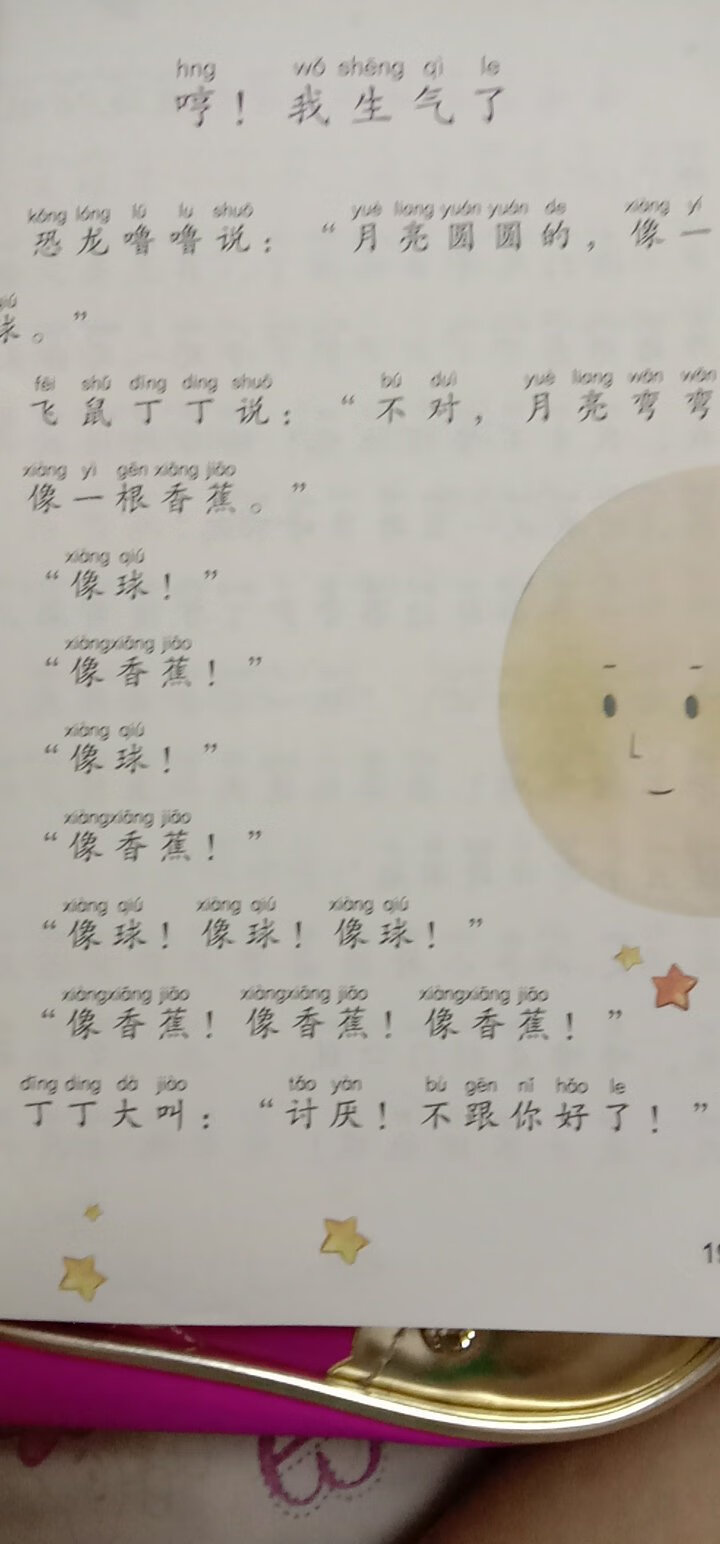 hng wǒ shēng qì le
哼！我生气了
kǒng lóng lū lu shuō yuè liang yuán yuán de xiàng yí
恐龙噜噜说：“月亮圆圆的，像一
qiú
球。”
fēi shǔ dīng ding shuō bú duì yuè liang wān wān
飞鼠丁丁说：“不对，月亮弯弯
xiàng yì gēn xiāng jiāo
像一根香蕉。”
xiàng qiú
“像球！”
xiàng xiāng jiāo
“像香蕉！”
xiàng qiú
“像球！”
xiàng xiāng jiāo
“像香蕉！”
xiàng qiú xiàng qiú xiàng qiú
“像球！像球！像球！”
xiàng xiāng jiāo xiàng xiāng jiāo xiàng xiāng jiāo
“像香蕉！像香蕉！像香蕉！”
dīng ding dà jiào tǎo yàn bù gēn nǐ hǎo le
丁丁大叫：“讨厌！不跟你好了！”